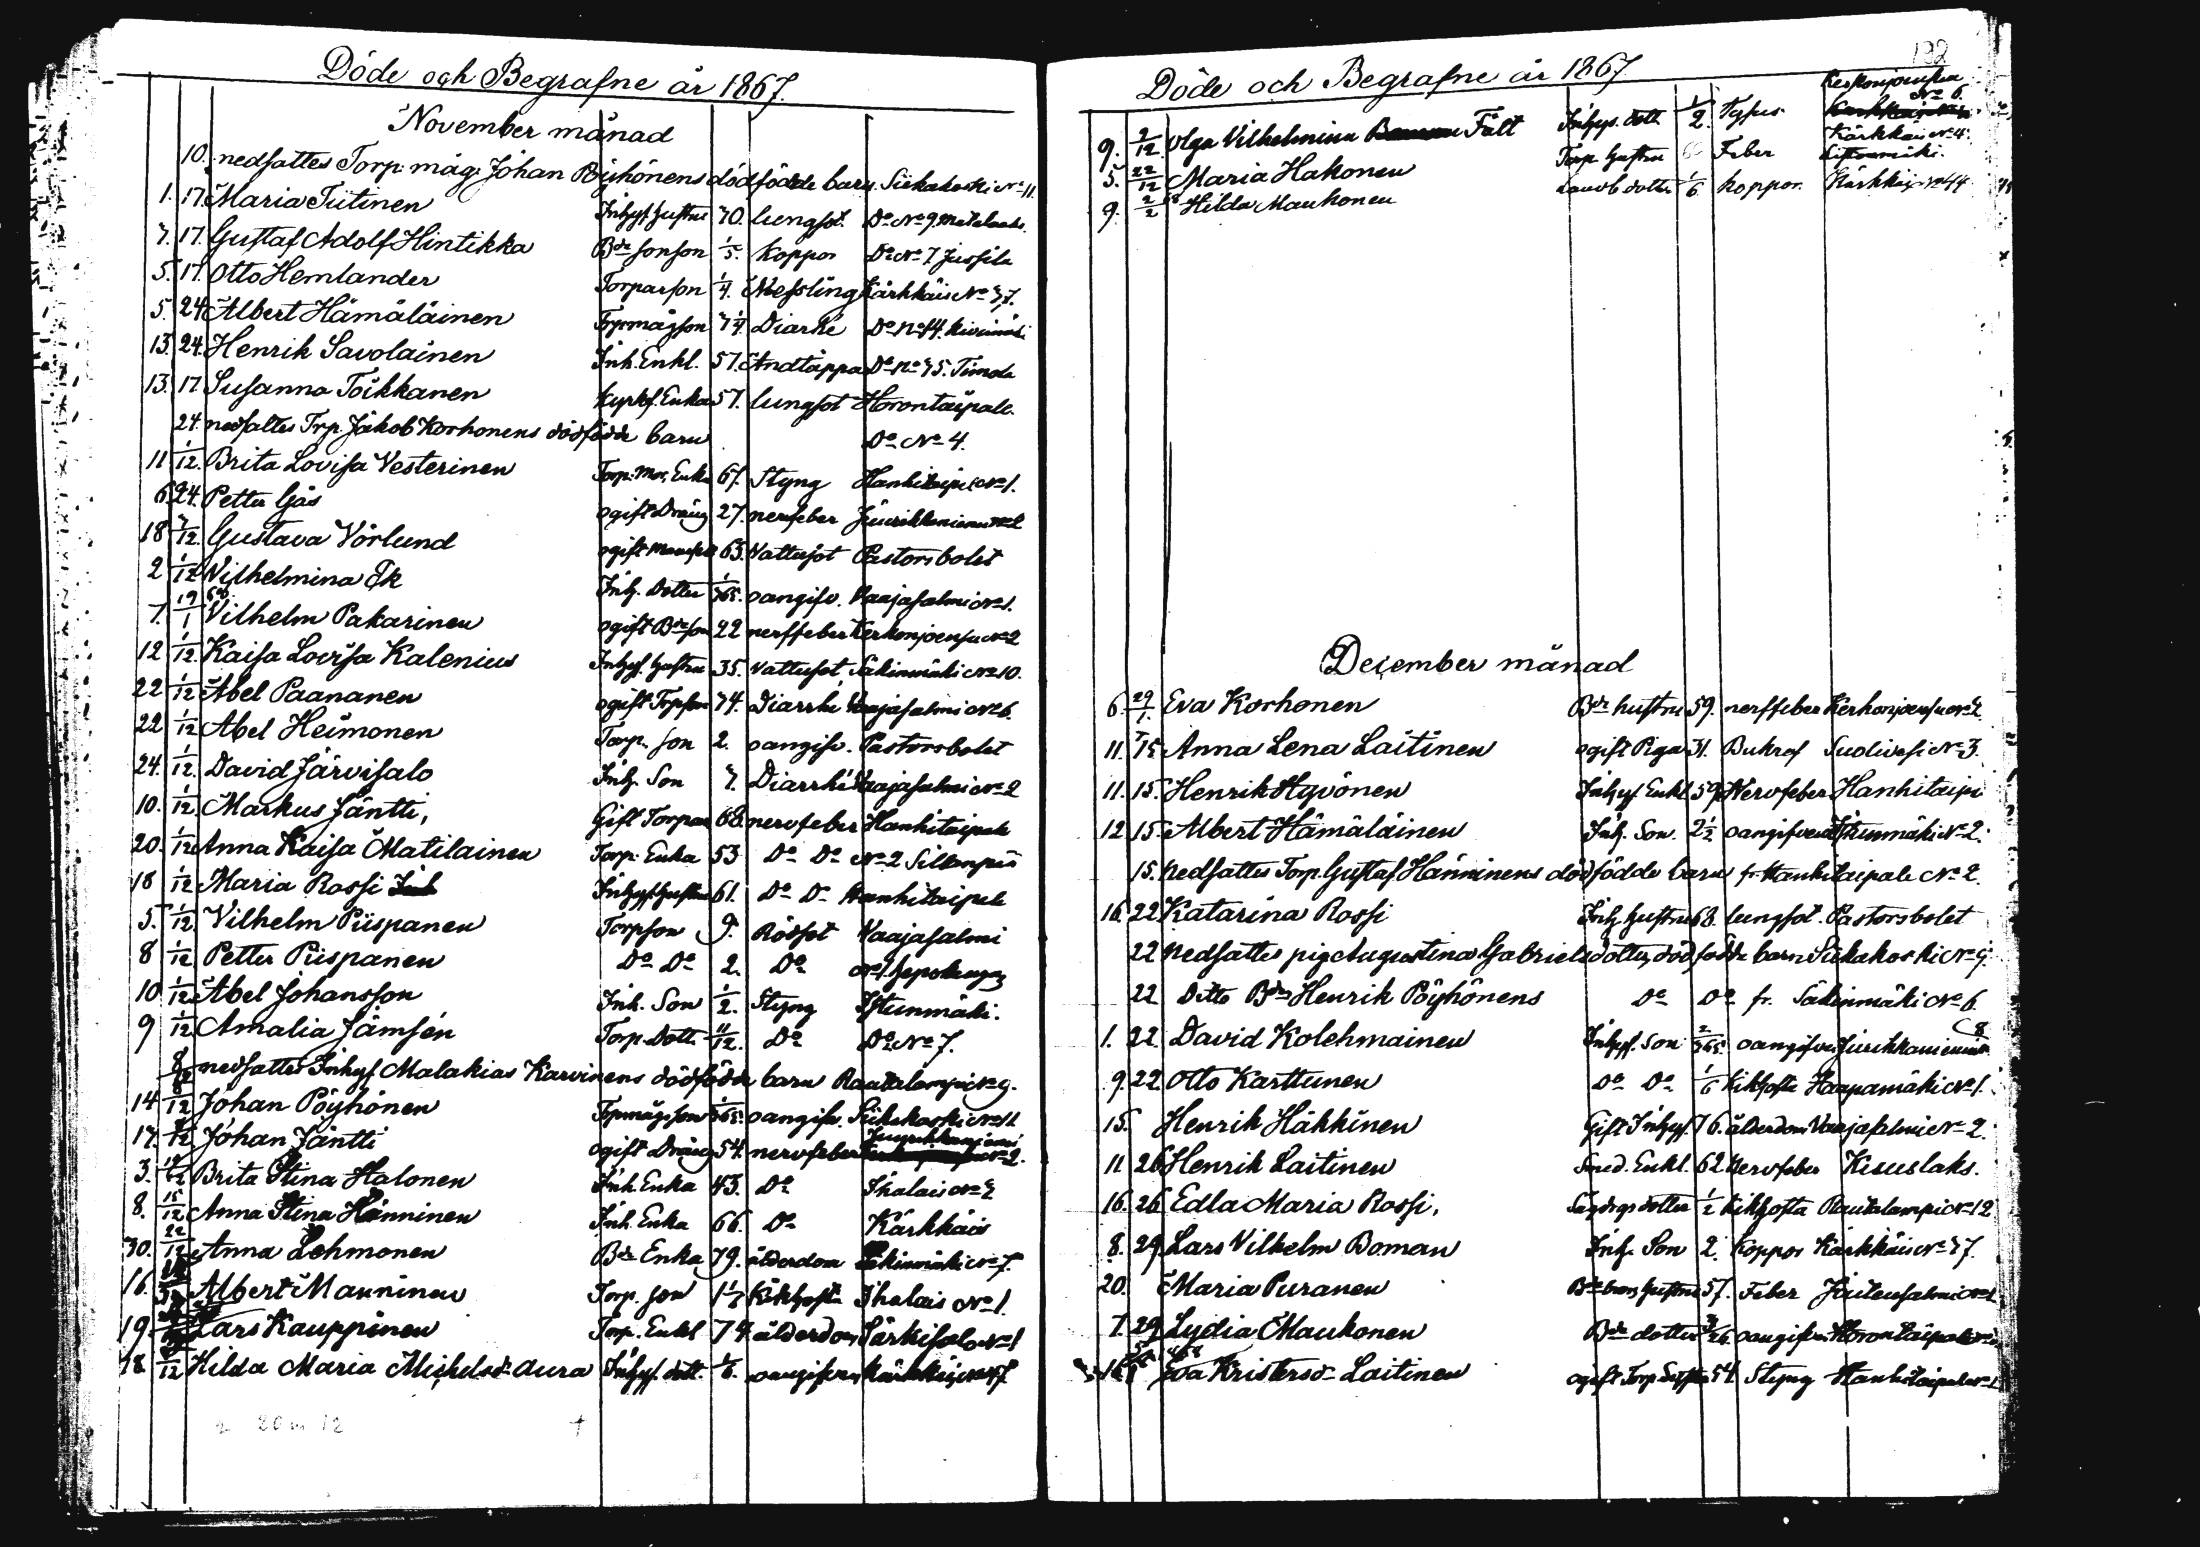 Döde och Begrafne år 1867.
November månad
10. nedsattes Torp. måg. Johan Pöyhönens dödfödde barn. Siikakoski No 11.
1. 17. Maria Tiitinen Inhys hustru 70. lungsot. Do No 9.
7. 17. Gustaf Adolf Hintikka Bde sonson 1/5. koppor Do No 7. Jussila
5. 17. Otto Hemlander Torparson 1/4. Messling Kärkkäis No 37.
5. 24. Albert Hämäläinen Torpmågson 7 1/4. Diarhé Do No 14. Kivimäki
13. 24. Henrik Savolainen Inh. Enkl. 57. Andtäppa Do No 35. Timola
13. 17. Susanna Toikkanen Enka 57. lungsot Horontaipale.
24. nedsattes Trp. Jakob Korhonens dödfödde barn Do No 4.
11 1/12. Brita Lovisa Vesterinen Torp. Mor, Enka 67. Styng Hanhitaipale No 1.
6 24. Petter Gås ogift Dräng 27. nerfeber Jiurikkaniemi No 2
18 1/12. Gustava Vörlund ogift 63. Vattusot Pastorsbolet
2 1/12 Vilhelmina Ek Inh. Dotter 1/365. oangifv. Vaajasalmi No 1.
7. 19/1 68 Vilhelm Pakarinen ogift Bdeson 22 nerffeber Kerkonjoensu No 2
12 1/12 Kaisa Lovisa Kalenius Inhys. hustru 35. Vattusot, Säkinmäki No 10.
22 1/12 Abel Paananen ogift Trpson 74. Diarrhe Vaajasalmi No 6.
22 1/12 Abel Heimonen Torp. son 2. oangifv. Pastorsbolet
24. 1/12. David Järvisalo Inh. Son 7. Diarrhé Vaajasalmi No 2
10. 1/12 Markus Jäntti, Gift Torpare 68. nervfeber Hanhitaipale
20. 1/12 Anna Kaisa Matilainen Torp. Enka 53 Do Do No 2 Sillanpää
18 1/12 Maria Rossi Inhys hustru 61. Do Do Hanhitaipale
5. 1/12. Vilhelm Piispanen Torpson 9. Rödsot Vaajasalmi
8 1/12 Petter Piispanen Do Do 2. Do No 1.
10 1/12 Abel Johansson Inh. Son 1/2. Styng Istunmäki.
9 1/12 Amalia Jämsén Torp. Dott. 11/12. Do Do No 7.
8/12 nedsattes Inhys Malakias Karvinens dödfödde barn Rautalampi No 9.
14 8/12 Johan Pöyhönen Trpmågsson 1/365. oangifv. Siikakoski No 11.
17. 8/12 Johan Jäntti ogift Dräng 54. nervfeber Jiurikkaniemi No 2.
3. Brita Stina Halonen Inh. Enka 43. Do Ihalais No 2
8. 15/12 Anna Stina Hänninen Inh. Enka 66. Do Kärkkäis
30. 22/12 Anna Lehmonen Bde Enka 79. ålderdom Säkinmäki No 7.
16. Albert Manninen Torp. son 1 1/2 Kikhosta Ihalais No 1.
19. Lars Kauppinen Torp. Enkl 74. ålderdom Särkisalo No 1
18. /12 Hilda Maria Michelsdr Aura Inhys. dott. 1/6. oangifven Kärkkäis No 47.
Döde och Begrafne år 1867
192
Kerkonjoensu No 6.
9. 2/12. Olga Vilhelmina Fält Inhys. dott. 1/2. Typus Kärkkäis No 4.
5. 22/12 Maria Hakonen Torp hustru Feber
9. 2/2 68 Hilda Maukonen dotter 1/6 koppor. Kärkkäis No 44
December månad
6. 29/1. Eva Korhonen Bde hustru 59. nerffeber Kerkonjoensu No 2.
11. 15 Anna Lena Laitinen ogift Piga 31. Bukref Suolivesi No 3.
11. 15. Henrik Hyvönen Inhys Enkl 59. Nervfeber Hanhitaipa
12 15. Albert Hämäläinen Inh. Son. 2 1/2 oangifven Istunmäki No 2.
15. nedsattes Torp. Gustaf Hänninens dödfödde barn fr. Hanhitaipale No 2.
16. 22. Katarina Rossi Inh. hustru 68. lungsot. Pastorsbolet
22 nedsattes pig. Augustina Gabrielsdotters dödfödde barn Siikakoski No 9.
22 Ditto Bde Henrik Pöyhönens Do Do fr. Säkinmäki No 6.
1. 22. David Kolehmainen Inhys. Son 2/365. oangifven Jiurikkaniemi 8
9. 22 Otto Karttunen Do Do 1/6 kikhosta Haapamäki No 1.
15. Henrik Häkkinen Gift Inhys. 76. ålderdom Vaajasalmi No 2.
11 26 Henrik Laitinen Smed. Enkl. 62 Nervfeber Kiesuslaks.
16. 26 Edla Maria Rossi, dotter 1/2 kikhosta Rautalampi No 12
8. 29. Lars Vilhelm Boman Inh. Son 2. Koppor Kärkkäis No 37.
20. Maria Puranen Bde hustru 57. Feber
7. 29 Lydia Maukonen Bde dotter oangifven Horontaipale
16 Eva Kristersdr Laitinen ogift Torp. 54 Styng Hanhitaipale No 1